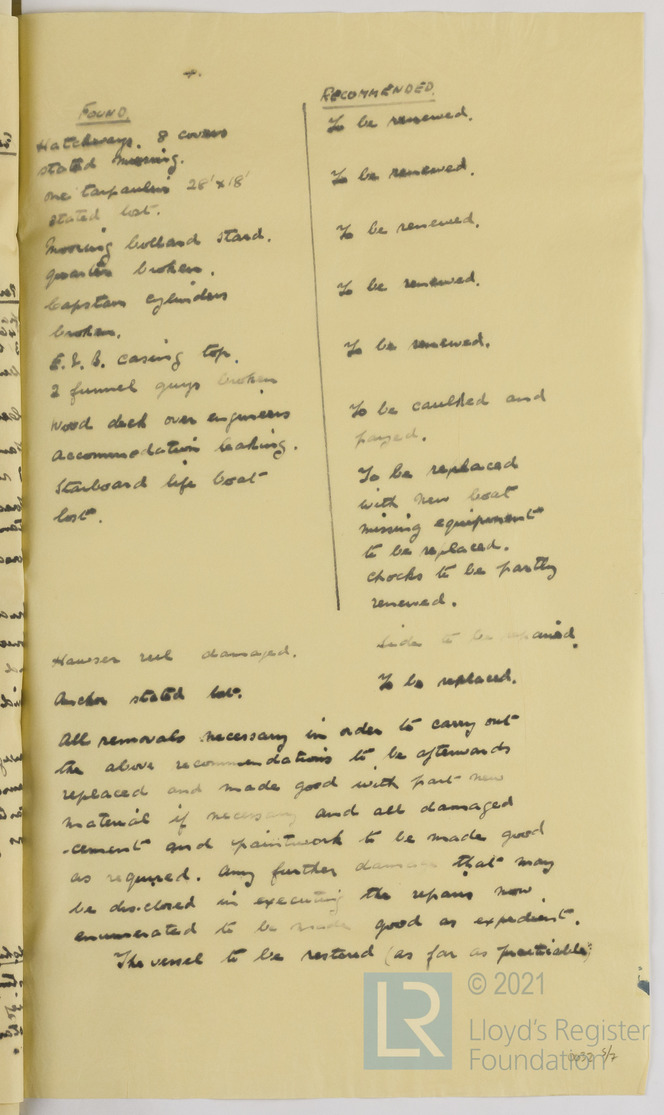 4.
FOUND.
Hatchways. 8 covers
stated missing.
One tarpaulin 28' x 18'
stated lost.
Mooring bollard stand.
quarter broken.
Capstan cylinders
broken.
E. & B. casing top.
2 funnel guys broken
Wood deck over engineers
accommodation leaking.
Starboard life boat
lost.
RECOMMENDED.
To be renewed.
To be renewed.
To be renewed.
To be renewed.
To be renewed.
To be caulked and
payed.
To be replaced
with new boat
missing equipment
to be replaced.
Chocks to be partly
renewed.
Hawser reel damaged.
Side to be repaired.
Anchor stated lost.
To be replaced.
All removals necessary in order to carry out
the above recommendations to be afterwards
replaced and made good with part new
material if necessary and all damaged
cement and paintwork to be made good
as required. Any further damage that may
be disclosed in executing the repairs now
enumerated to be made good as expedient.
The vessel to be restored (as far as practicable)
LR
© 2021
Lloyd's Register
Foundation
0032 5/7